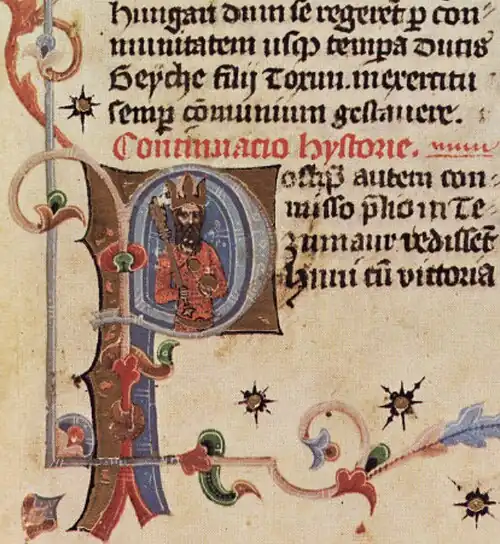 hungari dum se regeret p con-
munitatem usqꝫ tempa ducis
Geyche filij Toxun. in exercitu
semp cōmunium gestauere.
Continuacio hystorie.
Postqꝫ autem con-
misso p̄lio in Te-
zumaur redissēt
Huni cū victoria